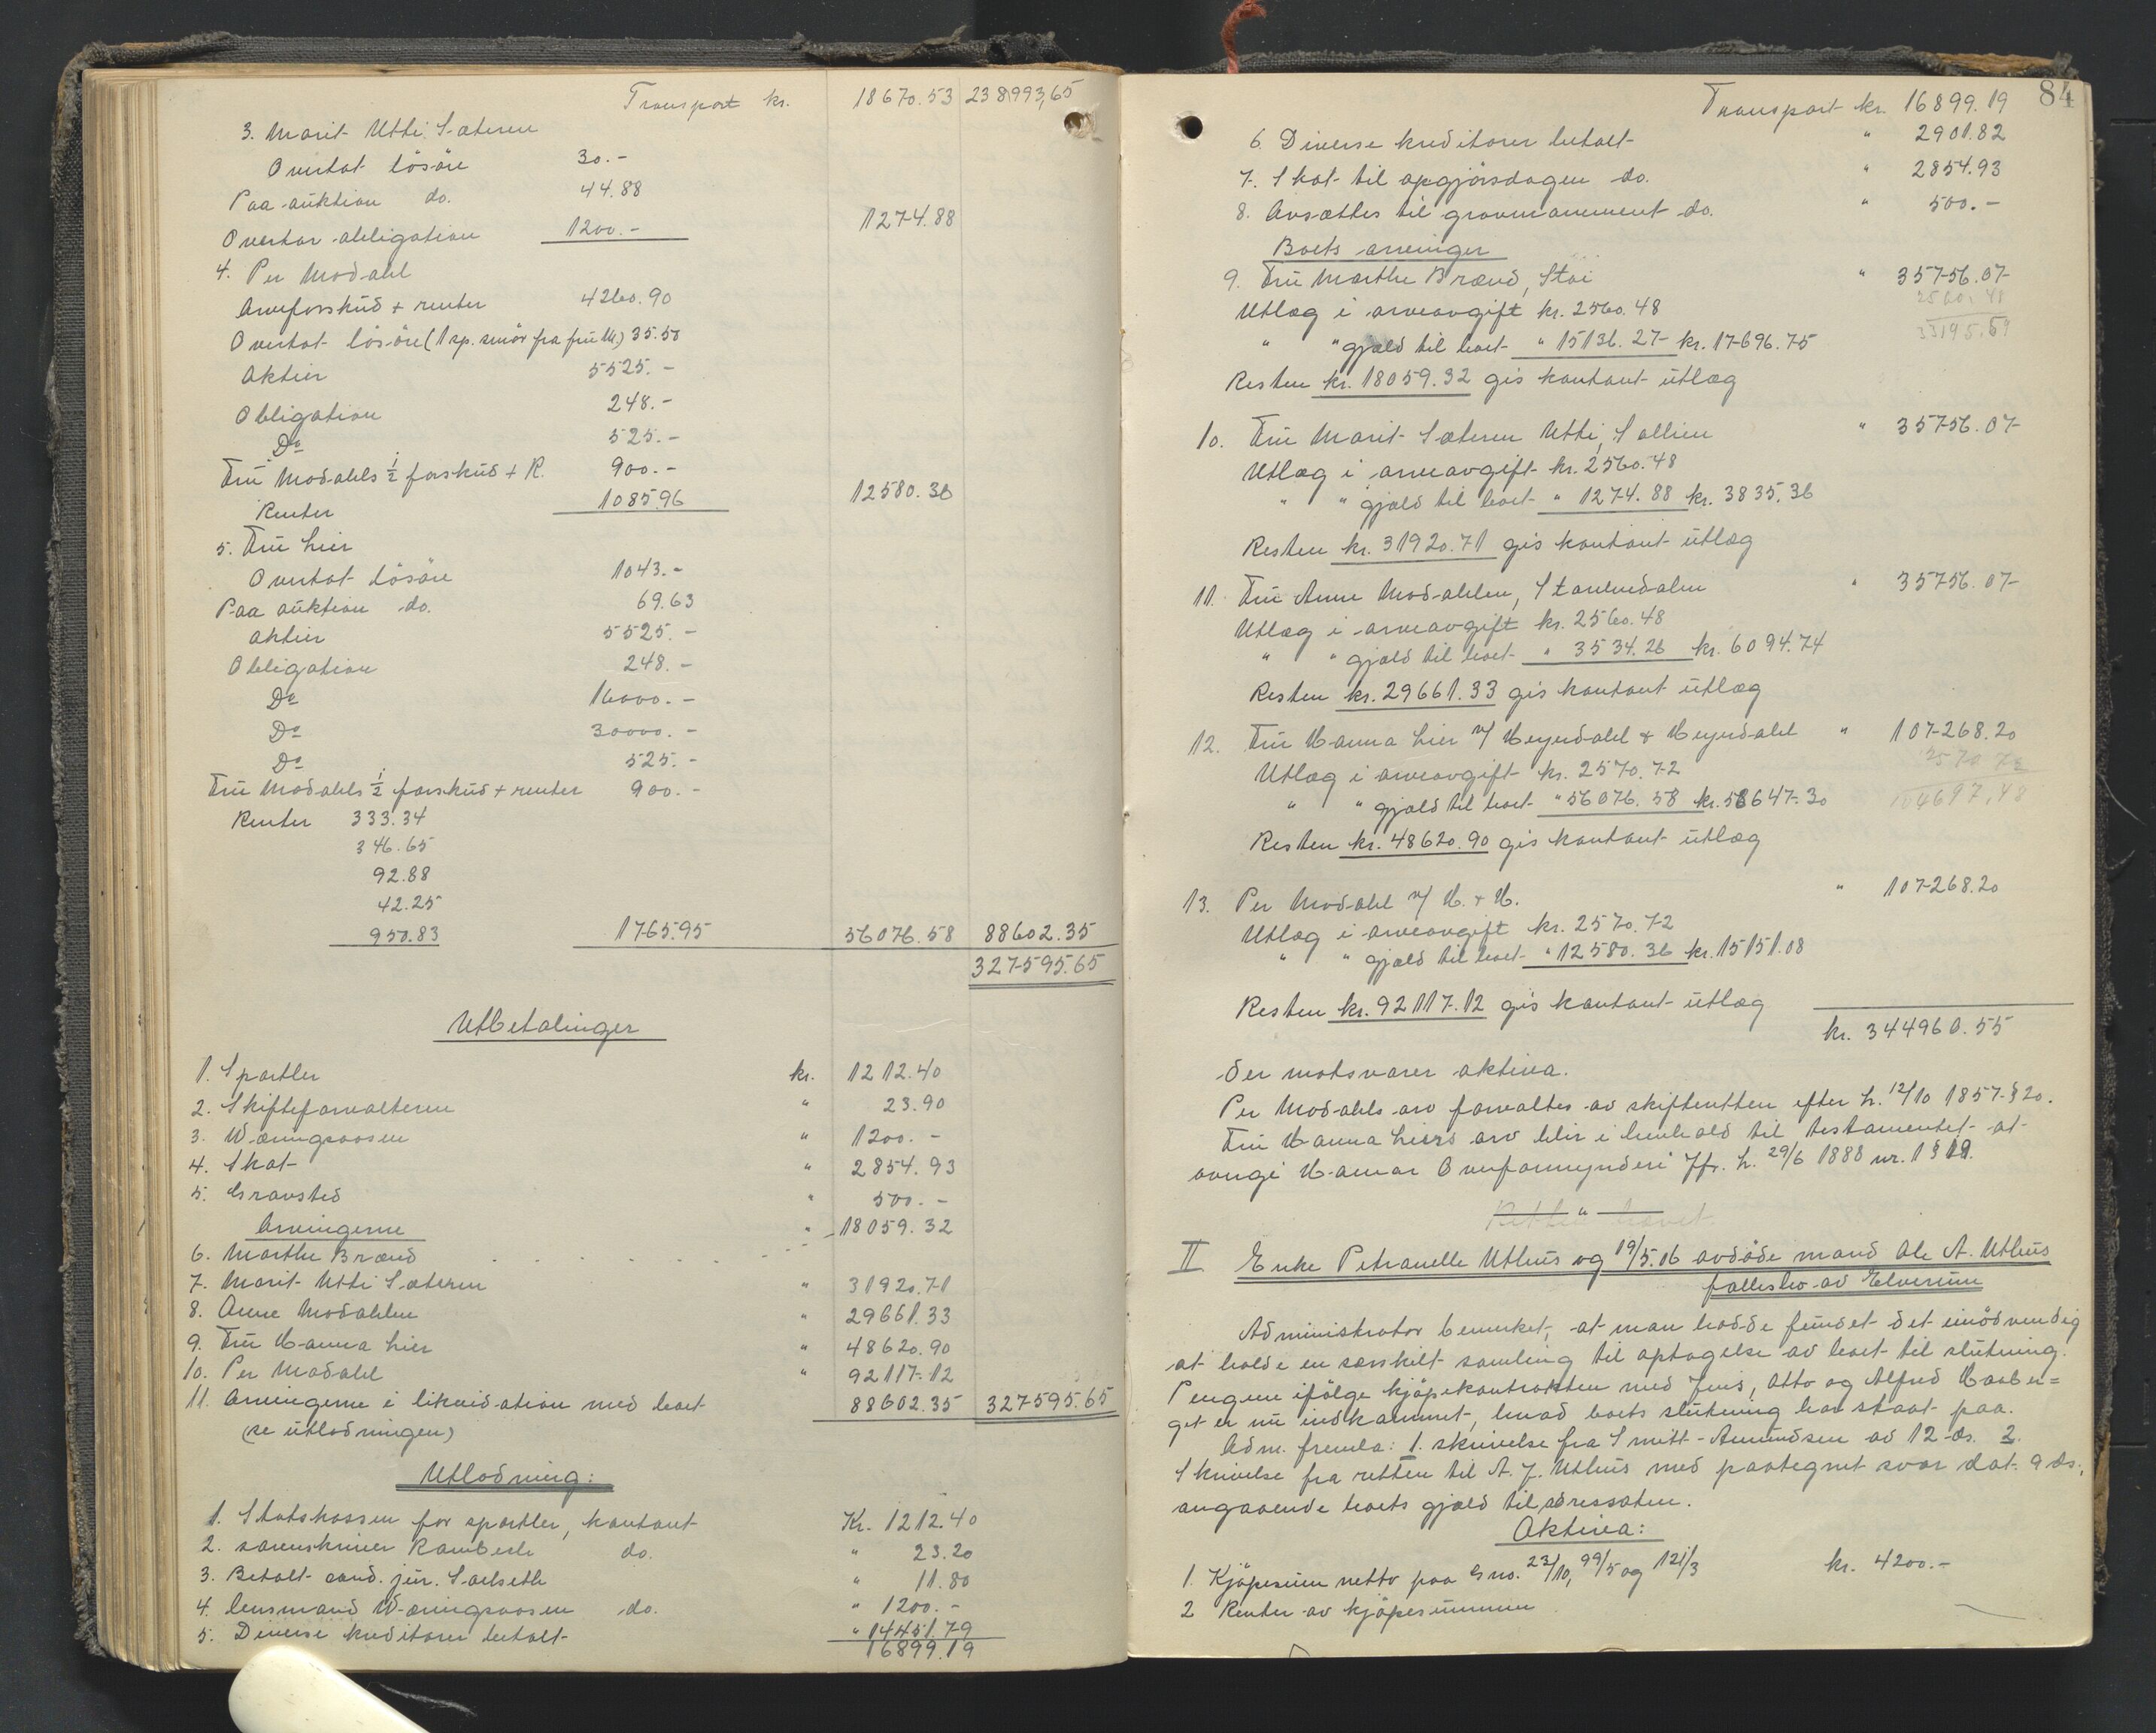 Transport kr. 18670.53 238993,65
3. Marit Utti Sæteren
Overtat lösöre 30.-
Paa auktion do. 44.88
Overtar obligation 1200.- 1274.88
4. Per Modahl
Arveforskud + renter 4260.90
Overtat lösöre (1 sp. smör fra fru M.) 35.50
Aktier 5525.-
Obligation 248.-
Do 525.-
Fru Modahls ½ forskud + R. 900.-
Renter 1085.96 12580.36
5. Fru Lier
Overtat lösöre 1043.-
Paa auktion do. 69.63
Aktier 5525.-
Obligation 248.-
Do 16000.-
Do 30000.-
Do 525.-
Fru Modahls ½ forskud + renter 900.-
Renter 333.34
346.65
92.88
42.25
950.83 1765.95 56076.58 88602.35
327595.65
Utbetalinger
1. Sportler kr. 1212.40
2. Skifteforvalteren " 23.90
3. Wæringsaasen " 1200.-
4. Skat " 2854.93
5. Gravsted " 500.-
Arvingerne " 18059.32
6. Marthe Brænd
7. Marit Utti Sæteren " 31920.71
8. Anne Modahlen " 29661.33
9. Fru Hanna Lier " 48620.90
10. Per Modahl " 92117.12
11. Arvingerne i likvidation med boet 88602.35 327595.65
(se utlodningen)
Utlodning:
1. Statskassen for sportler, kontant Kr. 1212.40
2. sorenskriver Rambech do. " 23.20
3. Betalt cand. jur. Saelseth " 11.80
4. lensmand Wæringsaasen do. " 1200.-
5. Diverse kreditorer betalt " 14451.79
16899.19
84
Transport kr. 16899.19
6. Diverse kreditorer betalt " 2901.82
7. Skat til opgjörsdagen do. " 2854.93
8. Avsættes til gravmonument do. " 500.-
Boets arvinger
9. Fru Marthe Brænd, Stai " 35756.07
2560.48
Utlæg i arveavgift kr. 2560.48
33195.59
" " gjæld til boet " 15136.27 kr. 17696.75
Resten kr. 18059.32 gis kontant utlæg
10. Fru Marit Sæteren Utti, Sollien " 35756.07
Utlæg i arveavgift kr. 2560.48
" " gjæld til boet " 1274.88 kr. 3835.36
Resten kr. 31920.71 gis kontant utlæg
11. Fru Anne Modahlen, Storelvedalen " 35756.07
Utlæg i arveavgift kr. 2560.48
" " gjæld til boet " 3534.26 kr. 6094.74
Resten kr. 29661.33 gis kontant utlæg
12. Fru Hanna Lier v/ Heyerdahl & Heyerdahl " 107268.20
2570.72
Utlæg i arveavgift kr. 2570.72
104697.48
" " gjæld til boet " 56076.58 kr. 58647.30
Resten kr. 48620.90 gis kontant utlæg
13. Per Modahl v/ H. & H. " 107268.20
Utlæg i arveavgift kr. 2570.72
" " gjæld til boet " 12580.36 kr. 15151.08
Resten kr. 92117.12 gis kontant utlæg
kr. 344960.55
der motsvarer aktiva.
Per Modahls arv forvaltes av skifteretten efter L. 12/10 1857 § 20.
Fru Hanna Liers arv blir i henhold til testamentet at
avngi Hamar Overformynderi Jfr. L. 29/6 1888 nr. 1 § 19.
Retten hævet
II Enke Petronelle Uthus og 19/5.06 avdöde mand Ole A. Uthus
fællesbo av Elverum
Administrator bemerket, at man hadde fundet det unödvendig
at holde en særskilt samling til optagelse av boet til slutning.
Pengene ifölge kjöpekontrakten med Jens, Otto og Alfred Haaber=
get er nu indkommet, hvad boets slutning har staat paa.
Adm. fremla: 1. skrivelse fra Smitt-Amundsen av 12 ds. 2.
Skrivelse fra retten til A. J. Uthus med paategnet svar dat. 9 ds.,
angaaende boets gjæld til adressaten.
Aktiva:
1. Kjöpesum netto paa Gno. 23/10, 99/5 og 121/3 kr. 4200.-
2 Renter av kjöpesummen